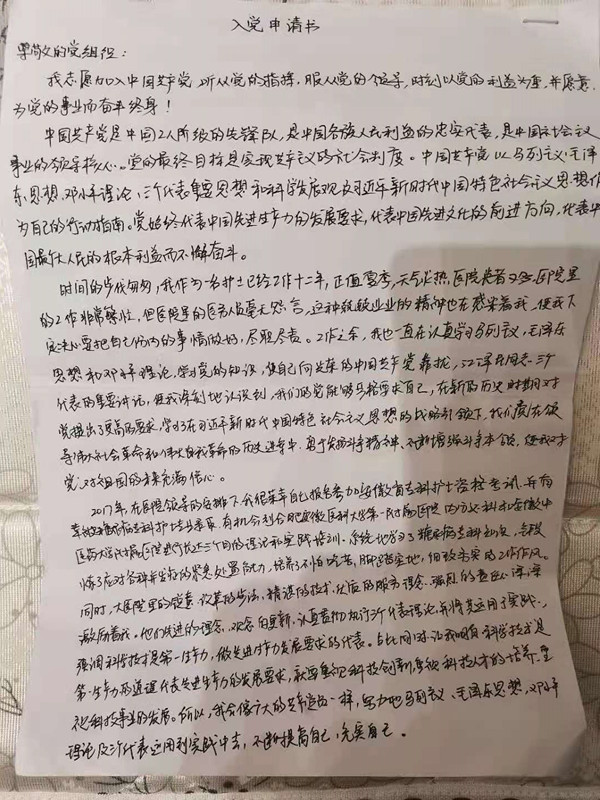 入党申请书
敬爱的党组织:
我志愿加入中国共产党,听从党的指挥,服从党的领导,时刻以党的利益为重,并愿意
为党的事业而奋斗终身!
中国共产党是中国工人阶级的先锋队,是中国各族人民利益的忠实代表,是中国社会主义
事业的领导核心。党的最终目标是实现共产主义的社会制度。中国共产党以马列主义、毛泽
东思想、邓小平理论、三个代表重要思想和科学发展观及习近平新时代中国特色社会主义思想作
为自己的行动指南。党始终代表中国先进生产力的发展要求,代表中国先进文化的前进方向,代表中
国最广大人民的根本利益而不懈奋斗。
时间的步伐匆匆,我作为一名护士已经工作十二年,正值夏季,天气炎热,医院患者多,医院里
的工作非常繁忙,但医院里的医务人员毫无怨言,这种兢兢业业的精神也在感染着我,使我下
定决心要把自己份内的事情做好,尽职尽责。工作之余,我也一直在认真学习马列主义、毛泽东
思想和邓小平理论,学习党的知识,使自己向光荣的中国共产党靠拢,江泽民同志三个
代表的重要讲话,使我深刻地认识到,我们的党能够严格要求自己,在新的历史时期对
党提出了更高的要求,学习在习近平新时代中国特色社会主义思想的战略引领下,我们党在领
导伟大社会革命和伟大自我革命的历史进程中,勇于发扬斗争精神、不断增强斗争本领,使我对
党、对祖国的未来充满信心。
2017年,在医院领导的安排下,我很荣幸自己报名参加安徽省专科护士资格考试,并有
幸被安徽省专科护士培训录取,有机会到合肥安徽医科大学第一附属医院内分泌科和安徽中
医药大学附属医院进行长达三个月的理论和实践培训,系统地学习了糖尿病专科知识,
炼了应对各科并发症的紧急处置能力,培养了不怕吃苦,脚踏实地,细致务实的工作作风。
同时,大医院里的改革的步伐,精湛的技术,优质的服务理念,强烈的责任心深深
激励着我。他们先进的理念,观念的更新,认真贯彻执行三个代表理论,并将其运用于实践,
强调科学技术是第一生产力,做先进生产力发展要求的代表。与此同时,让我明白科学技术是
第一生产力的道理,代表先进生产力的发展要求,就要重视科技创新,重视科技人才的培养,重
视科技事业的发展。所以,我会像广大的共产党员一样,努力把马列主义、毛泽东思想、邓小平
理论及三个代表运用到实践中去,不断提高自己,充实自己。